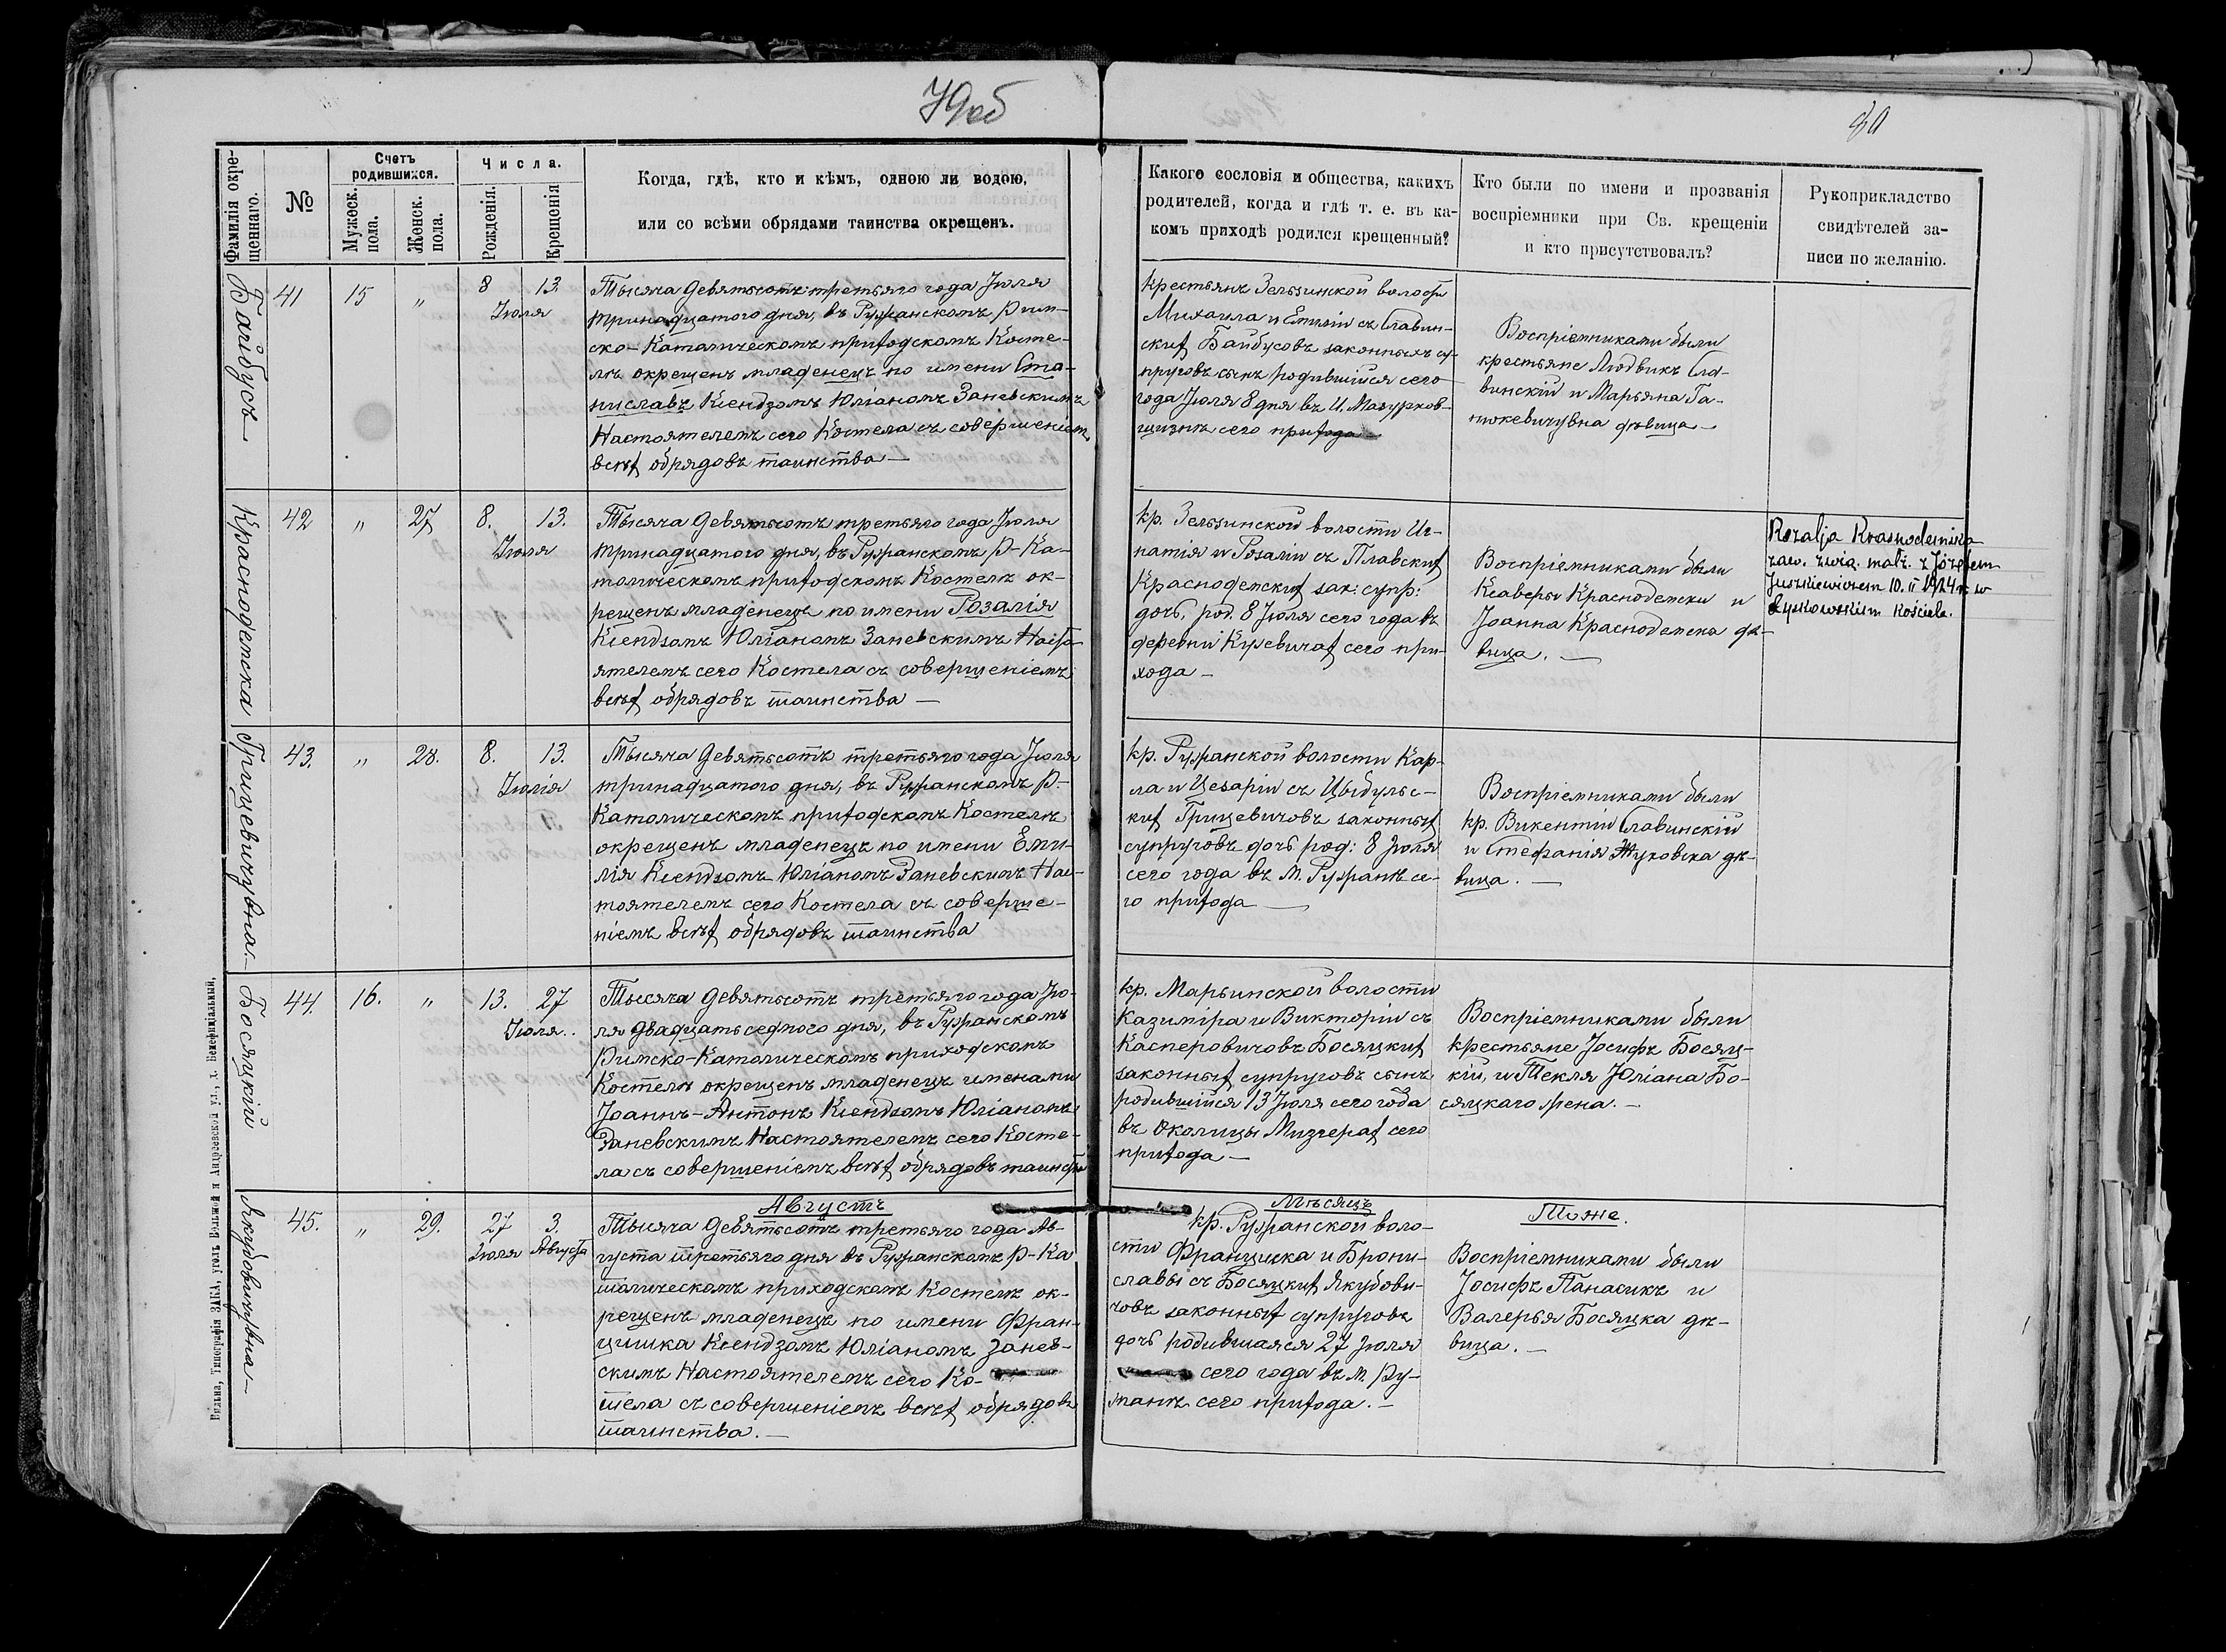 79об
80
Фамилія окре-
щеннаго.
№
Счетъ
родившихся.
Мужеск.
пола.
Женск.
пола.
Числа.
Рожденія.
Крещенія
Когда, гдѣ, кто и кѣмъ, одною ли водою,
или со всѣми обрядами таинства окрещенъ.
Какого сословія и общества, какихъ
родителей, когда и гдѣ т. е. въ ка-
комъ приходѣ родился крещенный?
Кто были по имени и прозванія
воспріемники при Св. крещеніи
и кто присутствовалъ?
Рукоприкладство
свидѣтелей за-
писи по желанію.
Байбусъ
41
15
"
8
13.
Іюля
Тысяча девятьсотъ третьяго года Іюля
тринадцатого дня, въ Ружанскомъ Рим-
ско-Католическомъ приходскомъ Косте-
лѣ окрещенъ младенецъ по имени Ста-
ниславъ Ксендзомъ Юліаномъ Заневскимъ
Настоятелемъ сего Костела съ совершеніем
всѣх обрядовъ таинства —
крестьянъ Зельзинской волости
Михаила и Емиліи съ Славин-
ских Байбусовъ законныхъ су-
пруговъ сынъ родившийся сего
года Іюля 8 дня въ И. Мазурков-
щизнѣ сего прихода —
Воспріемниками были
крестьяне Людвикъ Сла-
винскій и Марьяна Га-
нюкевичувна дѣвица —
Краснодемска
42
"
27
8.
13.
Іюля
Тысяча девятьсотъ третьяго года Іюля
тринадцатого дня, въ Ружанскомъ Р-Ка-
толическомъ приходскомъ Костелѣ ок-
рещенъ младенецъ по имени Розалія
Ксендзомъ Юліаномъ Заневскимъ Насто
ятелемъ сего Костела съ совершеніемъ
всѣх обрядовъ таинства —
кр. Зельзинской волости Иг-
натія и Розаліи съ Плавских
Краснодемских зак: супр:
дочь, род. 8 Іюля сего года въ
деревни Кусевичах сего при-
хода —
Воспріемниками были
Ксаверы Краснодемски и
Іоанна Краснодемска дѣ-
вица. —
Rozalja Krasnodemska
zaw. zwią. małż. z Józefem
Juszkiewiczem 10.II 1924 r. w
Łyskowskim Kościele.
Грицевичувна —
43.
"
28.
8.
13.
Іюлія
Тысяча девятьсотъ третьяго года Іюля
тринадцатого дня, въ Ружанскомъ Р.-
Католическомъ приходскомъ Костелѣ
окрещенъ младенецъ по имени Еми-
лія Ксендзомъ Юліаномъ Заневскимъ Нас-
тоятелемъ сего Костела съ соверше-
ніемъ всѣх обрядовъ таинства
кр. Ружанской волости Кар-
ла и Цезаріи съ Цыбульс-
ких Грицевичовъ законных
супруговъ дочь род: 8 Іюля
сего года въ М. Ружанѣ се-
го прихода —
Воспріемниками были
кр. Викентій Славинскій
и Стефанія Жуковска дѣ-
вица. —
Босяцкій
44.
16.
"
13.
27
Іюля.
Тысяча девятьсотъ третьяго года Ію-
ля двадцать седмого дня, въ Ружанскомъ
Римско-Католическомъ приходскомъ
Костелѣ окрещенъ младенецъ именами
Іоаннъ-Антонъ Ксендзомъ Юліаномъ
Заневскимъ Настоятелемъ сего Косте-
ла съ совершеніемъ всѣх обрядовъ таинств
кр. Марьинской волости
Казиміра и Викторіи съ
Касперовичовъ Босяцких
законных супруговъ сынъ
родившийся 13 Іюля сего года
въ околицы Мизгерах сего
прихода —
Воспріемниками были
крестьяне Іосифъ Босяц-
кій, и Текля Юліана Бо-
сяцкаго жена. —
Якубовичувна —
45.
"
29.
27
3.
Іюля
Августа
Августъ
Тысяча девятьсотъ третьяго года Ав-
густа третьяго дня въ Ружанскомъ Р-Ка
толическомъ приходскомъ Костелѣ ок-
рещенъ младенецъ по имени Фран-
цишка Ксендзомъ Юліаномъ Занев-
скимъ Настоятелемъ сего Ко-
стела съ совершеніемъ всѣх обрядовъ
таинства. —
Мѣсяцъ
кр. Ружанской воло-
сти Францишка и Брони-
славы съ Босяцких Якубови-
човъ законных супруговъ
дочь родившаяся 27 Іюля
сего года въ м. Ру-
жанѣ сего прихода. —
Тоже.
Воспріемниками были
Іосифъ Панасикъ и
Валерья Босяцка дѣ-
вица. —
Вильна, Типографія ЗАКА, уголъ Большой и Андреевской ул., д. Бенефиціальный.